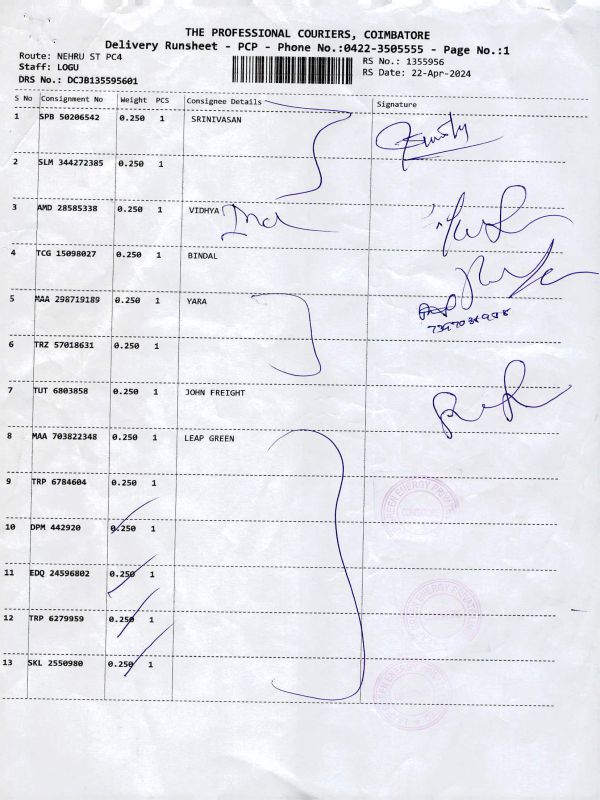 THE PROFESSIONAL COURIERS, COIMBATORE
Delivery Runsheet - PCP - Phone No.:0422-3505555 - Page No.:1
Route: NEHRU ST PC4
RS No.: 1355956
Staff: LOGU
RS Date: 22-Apr-2024
DRS No.: DCJB135595601
S No Consignment No Weight PCS Consignee Details Signature
1 SPB 50206542 0.250 1 SRINIVASAN
2 SLM 344272385 0.250 1
3 AMD 28585338 0.250 1 VIDHYA
4 TCG 15098027 0.250 1 BINDAL
5 MAA 298719189 0.250 1 YARA
6 TRZ 57018631 0.250 1
7 TUT 6803858 0.250 1 JOHN FREIGHT
8 MAA 703822348 0.250 1 LEAP GREEN
9 TRP 6784604 0.250 1
10 DPM 442920 0.250 1
11 EDQ 24596802 0.250 1
12 TRP 6279959 0.250 1
13 SKL 2550980 0.250 1